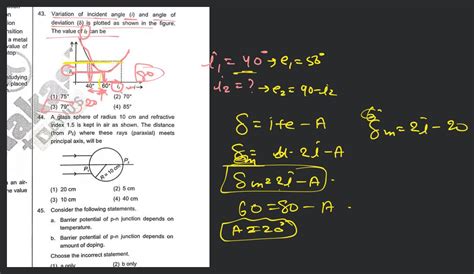 43. Variation of incident angle (i) and angle of
deviation (δ) is plotted as shown in the figure.
The value of θ can be
40° 60°
(1) 75° (2) 70°
(3) 79° (4) 85°
44. A glass sphere of radius 10 cm and refractive
index 1.5 is kept in air as shown. The distance
(from P₂) where these rays (paraxial) meets
principal axis, will be
R = 10 cm
(1) 20 cm (2) 5 cm
(3) 10 cm (4) 40 cm
45. Consider the following statements.
a. Barrier potential of p-n junction depends on
temperature.
b. Barrier potential of p-n junction depends on
amount of doping.
Choose the incorrect statement.
(1) a only (2) b only
i₁ = 40° → e₁ = 50°
i₂ = ? → e₂ = 90-i₂
δ = i+e - A
δₘ = 2i - A
δₘ = 2i - A
60 = 80 - A
A = 20°
δₘ = 2i - 20